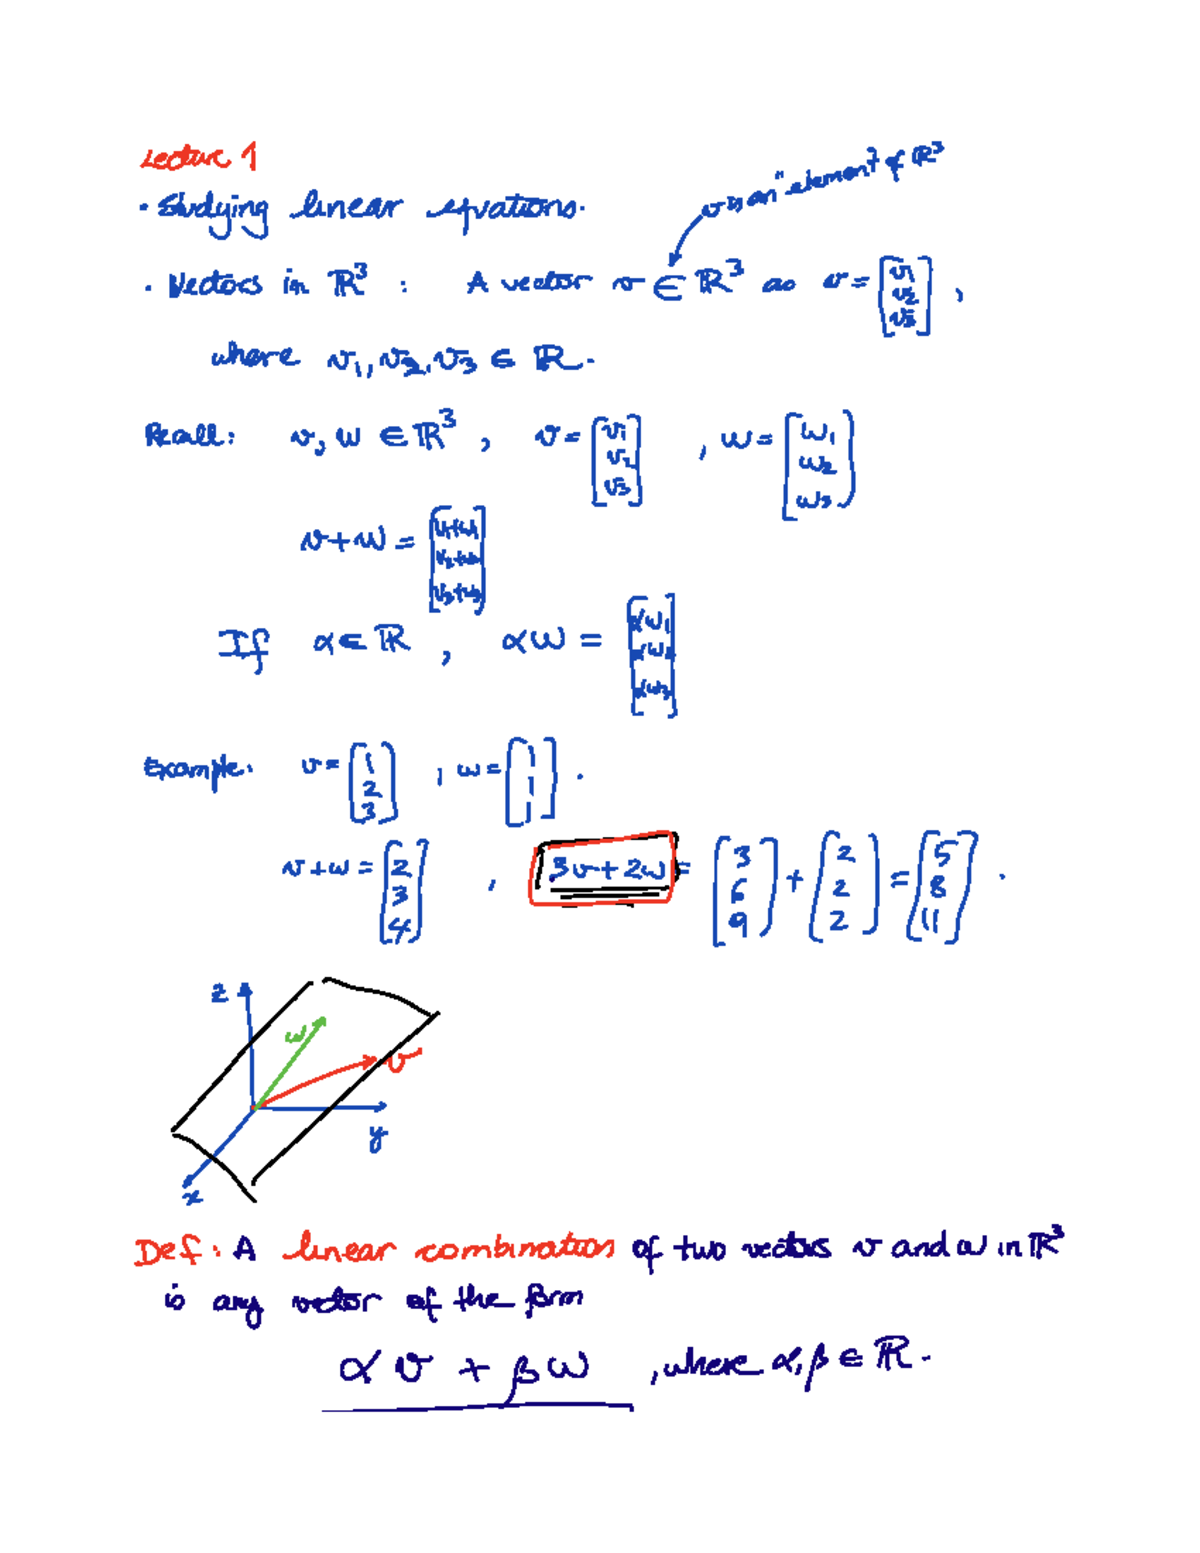 Lecture 1
v is an "element" of ℝ³
· Studying linear equations.
· Vectors in ℝ³ : A vector v ∈ ℝ³ as v = [v₁ v₂ v₃] ,
where v₁, v₂, v₃ ∈ ℝ.
Recall: v, w ∈ ℝ³ , v = [v₁ v₂ v₃] , w = [w₁ w₂ w₃]
v+w = [v₁+w₁ v₂+w₂ v₃+w₃]
If α ∈ ℝ , αw = [αw₁ αw₂ αw₃]
Example: v = [1 2 3] , w = [1 1 1] .
v+w = [2 3 4] , 3v+2w = [3 6 9] + [2 2 2] = [5 8 11] .
z
w
v
y
x
Def: A linear combination of two vectors v and w in ℝ³
is any vector of the form
αv + βw , where α, β ∈ ℝ.